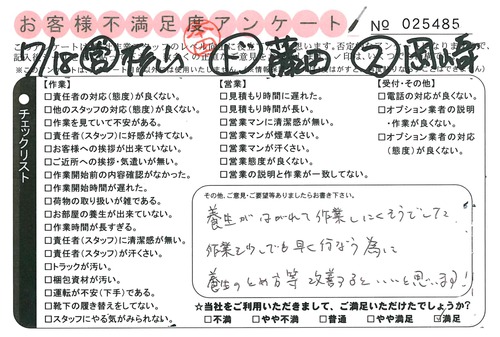 お客様不満足度アンケート
No 025485
7/18
藤田
岡崎
チェックリスト
【作業】
□責任者の対応(態度)が良くない。
□他のスタッフの対応(態度)が良くない。
□作業を見ていて不安がある。
□責任者(スタッフ)に好感が持てない。
□お客様への挨拶が出来ていない。
□ご近所への挨拶・気遣いが無い。
□作業開始前の内容確認がなかった。
□作業開始時間が遅れた。
□荷物の取り扱いが雑である。
□お部屋の養生が出来ていない。
□作業時間が長すぎる。
□責任者(スタッフ)に清潔感が無い。
□責任者(スタッフ)が汗くさい。
□トラックが汚い。
□梱包資材が汚い。
□運転が不安(下手)である。
□靴下の履き替えをしてない。
□スタッフにやる気がみられない。
【営業】
□見積もり時間に遅れた。
□見積もり時間が長い。
□営業マンに清潔感が無い。
□営業マンが煙草くさい。
□営業マンが汗くさい。
□営業態度が良くない。
□営業の説明と作業が一致してない。
【受付・その他】
□電話の応対が良くない。
□オプション業者の説明
・作業が良くない。
□オプション業者の対応
(態度)が良くない。
その他、ご意見・ご要望等ありましたらお書き下さい。
養生がはがれて作業しにくそうでした。
作業を少しでも早く行なう為に
養生のとめ方等改善するといいと思います!
☆当社をご利用いただきまして、ご満足いただけたでしょうか?
□不満 □やや不満 □普通 □やや満足 ☑満足